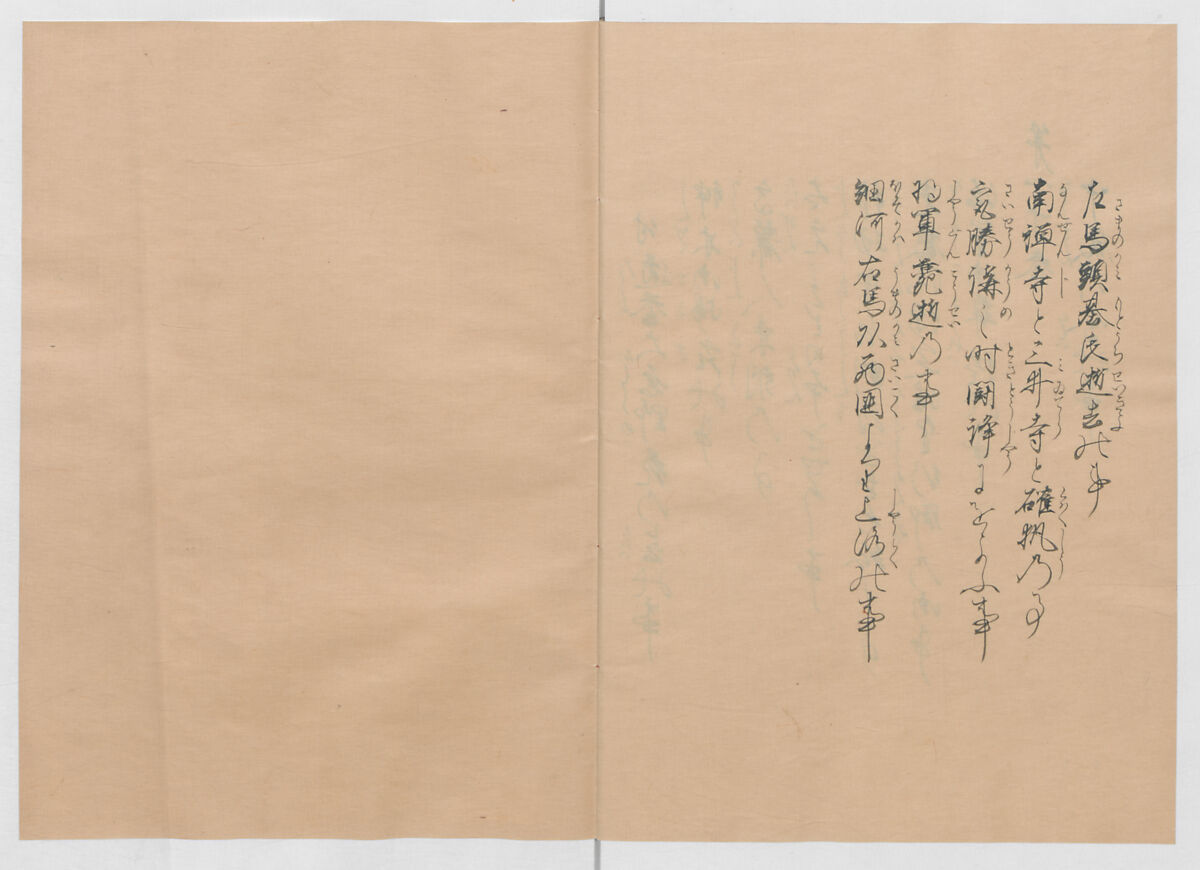 左馬頭基氏逝去の事
南禅寺と三井寺と確執の事
最勝講之時闘諍にをよふ事
将軍薨逝の事
細河右馬頭西国より上洛の事